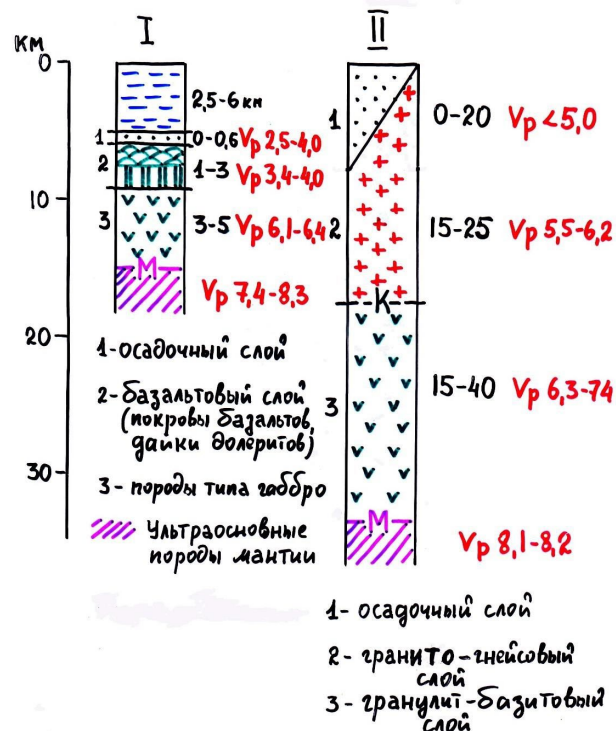 I
II
км
0
10
20
30
2,5-6 км
1
0-0,6 Vp 2,5-4,0
2
1-3 Vp 3,4-4,0
3
3-5 Vp 6,1-6,4
М
Vp 7,4-8,3
1-осадочный слой
2-базальтовый слой
(покровы базальтов,
дайки долеритов)
3- породы типа габбро
Ультраосновные
породы мантии
1
0-20 Vp <5,0
2
15-25 Vp 5,5-6,2
К
3
15-40 Vp 6,3-74
М
Vp 8,1-8,2
1- осадочный слой
2- гранито-гнейсовый
слой
3- гранулит-базитовый
слой